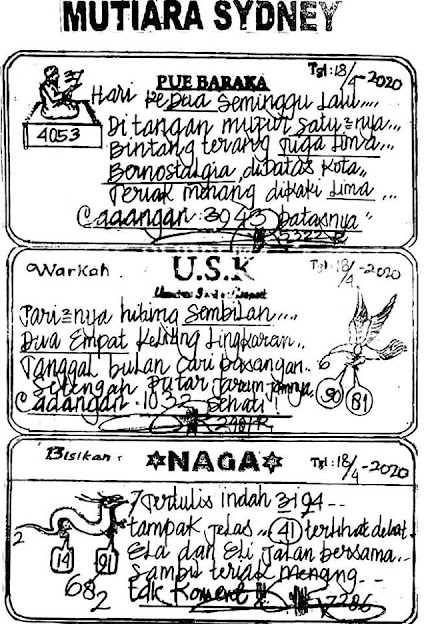 MUTIARA SYDNEY
37
PUE BARAKA
Tgl: 18/4-2020
4053
Hari ke Dua Seminggu Lalu.....
Di tangan mungur satu nya...
Bintang terang juga lima...
Bernostalgia, dibatas kota..
Teriak menang dikaki lima ...
Cadangan: 3943 batasnya"
5322-R
Warkah.
U.S.K
Tgl: 18/4-2020
Jarinya hitung Sembilan....
Dua Empat Keliling lingkaran..
Tanggal bulan Cari pasangan.. 6
Setengah putar Jarum jamnya,
90 81
Cadangan. 1032 Sehati!
Bisikan:
NAGA
Tgl: 18/4-2020
7
Tertulis indah 3i 94--
tampak jelas.. 41 terlihat dekat.
2
14 91
Ela dan Eli Jalan bersama..
Sambu teriak menang--
682
tdk Koment
7286